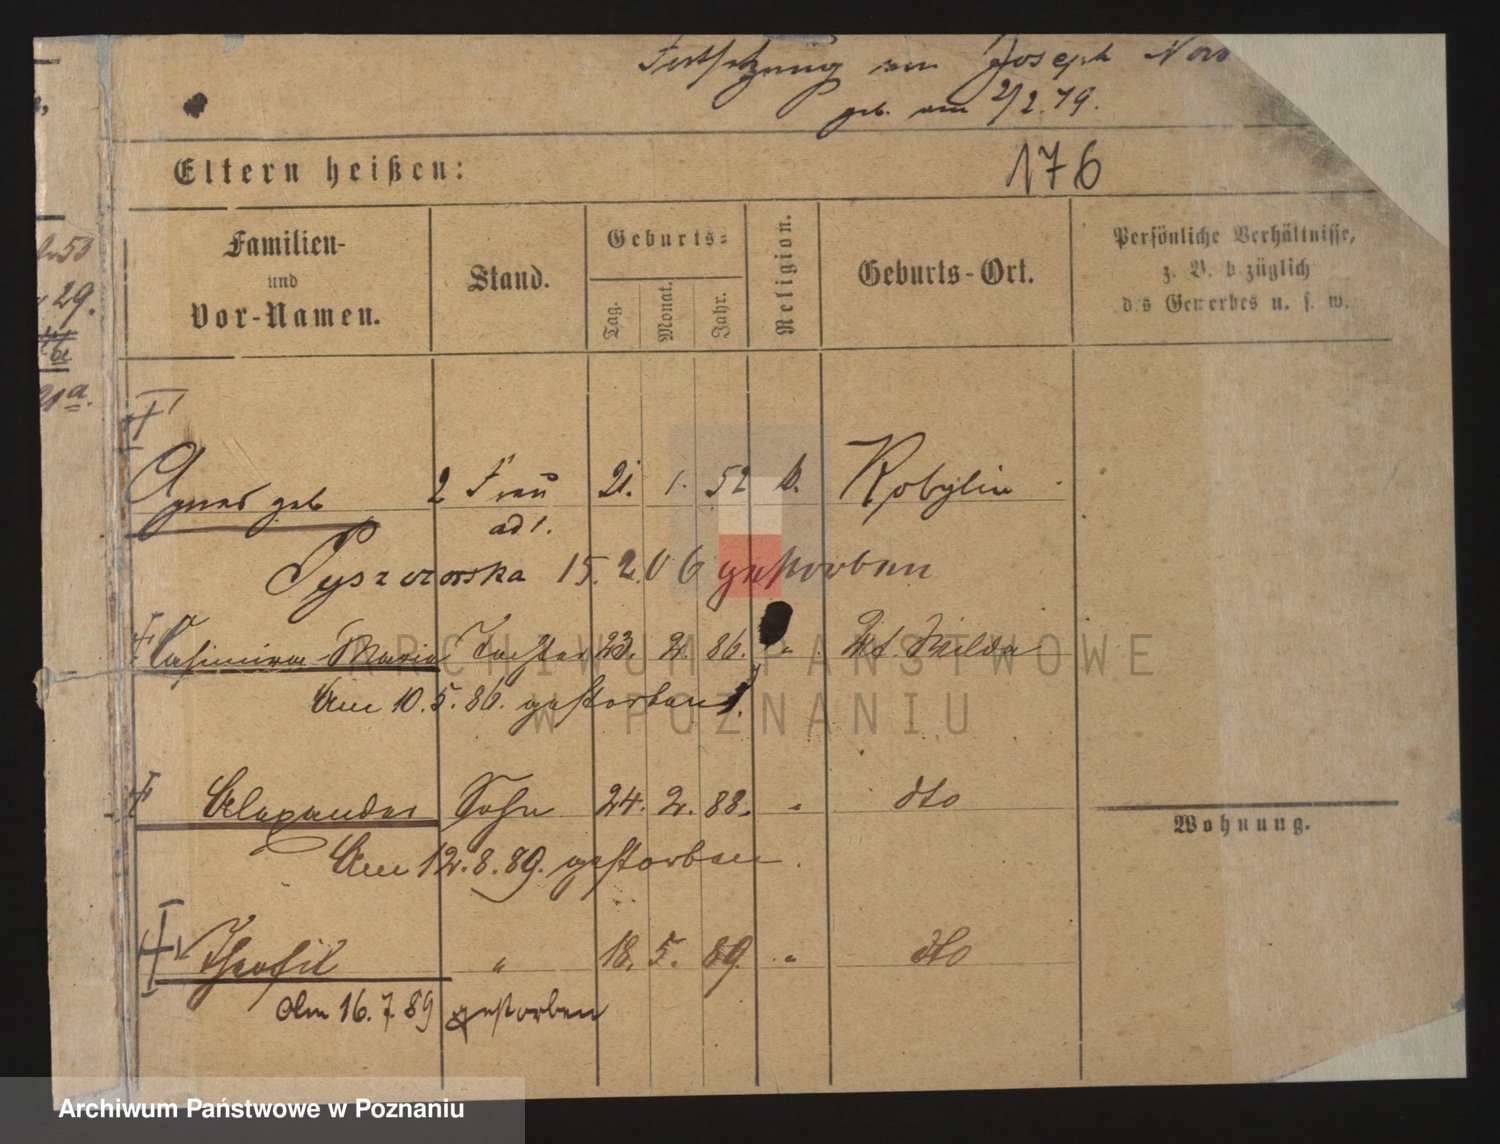 Fortsetzung von Joseph Now
geb. am 2/2.79.
Eltern heißen:
176
Familien-
und
Vor-Namen.
Stand.
Geburts-
Tag.
Monat.
Jahr.
Religion.
Geburts-Ort.
Persönliche Verhältnisse,
z. B. bezüglich
des Gewerbes u. s. w.
53
29.
21a.
Agnes geb 2 Frau 21. 1. 52 k. Kobylin
ad 1.
Pyszczorska 15.2.06 gestorben
Casimira Maria Tochter 23. 2. 86. " Wilda
Am 10.5.86. gestorben.
Alexander Sohn 24. 2. 88. " dto
Am 12.8.89. gestorben.
Wohnung.
Theofil " 18. 5. 89. " dto
Am 16.7.89 gestorben
ARCHIWUM PAŃSTWOWE
W POZNANIU
Archiwum Państwowe w Poznaniu